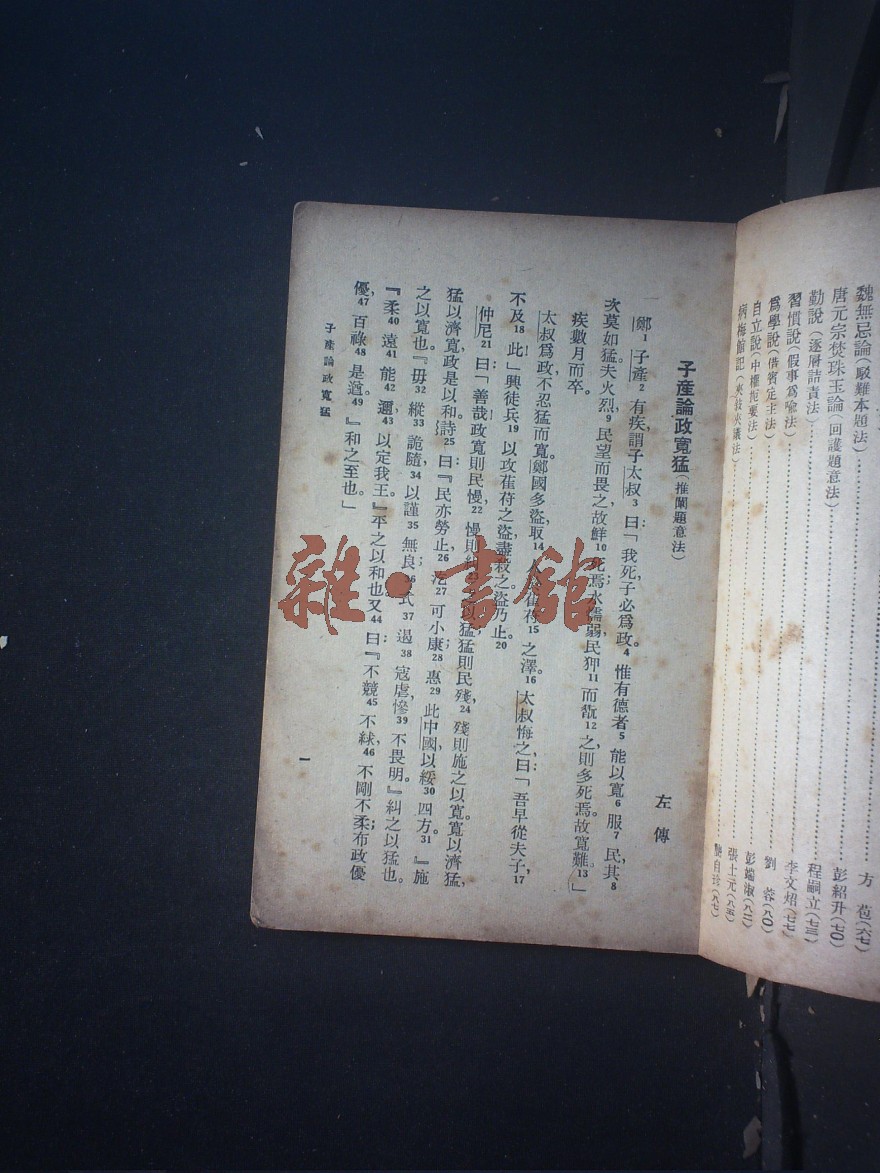 魏無忌論(駁難本題法)……方苞(六七)
唐元宗焚珠玉論(回護題意法)……彭紹升(七〇)
勤說(逐層詰責法)……程嗣立(七三)
習慣說(假事爲喩法)……李文炤(七七)
爲學說(借賓定主法)……劉蓉(八〇)
自立說(中權扼要法)……彭端淑(八二)
病梅館記(夾敍夾議法)……張士元(八五)
龔自珍(八七)
子產論政寬猛(推闡題意法)
左傳
鄭1子產2有疾,謂子太叔3曰:「我死,子必爲政。4惟有德者5能以寬6服7民,其8
次莫如猛。夫火烈9民望而畏之,故鮮10死焉;水濡弱,民狎11而翫12之,則多死焉,故寬難。13」
疾數月而卒。
太叔爲政,不忍猛而寬。鄭國多盜,取14雈苻15之澤。16太叔悔之,曰:「吾早從夫子,17
不及18此」興徒兵19以攻萑苻之盜,盡殺之,盜乃止。20
仲尼21曰:「善哉政寬則民慢,22慢則糾之以猛;猛則民殘,24殘則施之以寬。寬以濟猛,
猛以濟寬,政是以和。詩25曰:『民亦勞止,26汔27可小康;28惠29此中國,以綏30四方。31』施
之以寬也。『毋32縱33詭隨,34以謹35無良;36式37遏38寇虐,慘39不畏明。』糾之以猛也。
『柔40遠41能42邇,43以定我王。』平之以和也。又44曰:『不競45不絿,46不剛不柔;布政優
優,47百祿48是遒。49』和之至也。」
子產論政寬猛
一
雜·書館